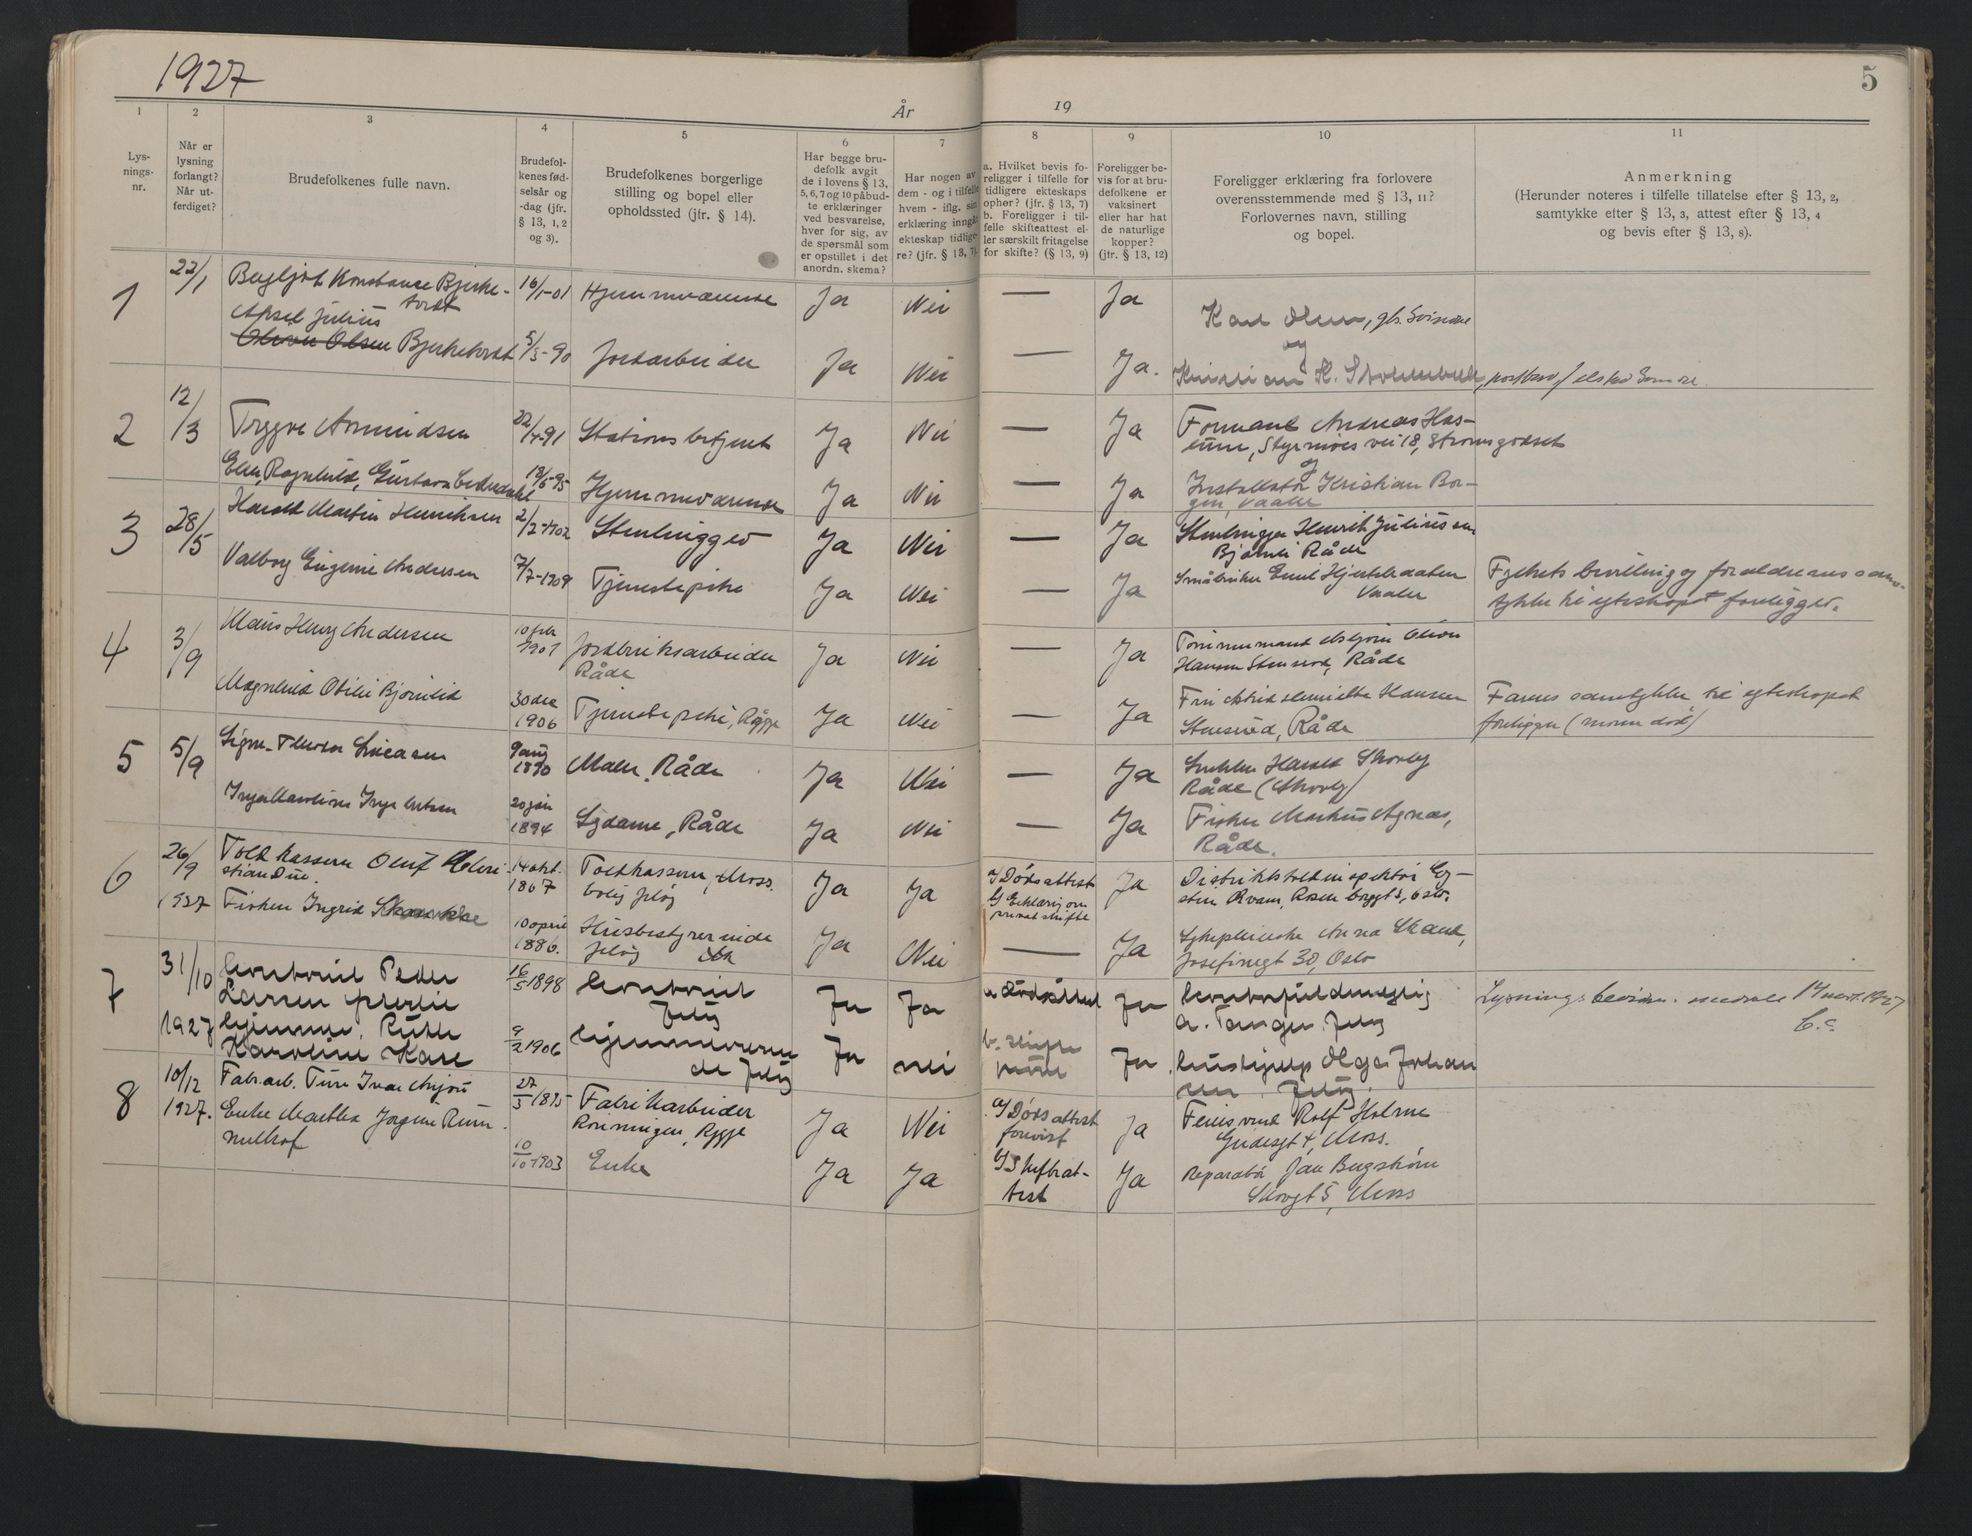 1927
5
År
19
1
2
3
4
5
6
7
8
9
10
11
Lys-
nings-
nr.
Når er
lysning
forlangt?
Når ut-
ferdiget?
Brudefolkenes fulle navn.
Brudefol-
kenes fød-
selsår og
-dag (jfr.
§ 13, 1, 2
og 3).
Brudefolkenes borgerlige
stilling og bopel eller
opholdssted (jfr. § 14).
Har begge bru-
defolk avgit
de i lovens § 13,
5, 6, 7 og 10 påbud-
te erklæringer
ved besvarelse,
hver for sig, av
de spørsmål som
er opstillet i det
anordn. skema?
Har nogen av
dem - og i tilfelle
hvem - iflg. sin
erklæring inngåt
ekteskap tidlige-
re? (jfr. § 13, 7).
a. Hvilket bevis fo-
religger i tilfelle for
tidligere ekteskaps
ophør? (jfr. § 13, 7)
b. Foreligger i til-
felle skifteattest el-
ler særskilt fritagelse
for skifte? (§ 13, 9)
Foreligger be-
vis for at bru-
defolkene er
vaksinert
eller har hat
de naturlige
kopper?
(jfr. § 13, 12)
Foreligger erklæring fra forlovere
overensstemmende med § 13, 11?
Forlovernes navn, stilling
og bopel.
Anmerkning
(Herunder noteres i tilfelle tillatelse efter § 13, 2,
samtykke efter § 13, 3, attest efter § 13, 4
og bevis efter § 13, 8).
1 22/1 Bergljot Konstanse Bjerke-
tvedt 16/1-01 Hjemmeværende Ja Nei — Ja
Aksel Julius
Oliver Olsen Bjerketvedt 5/3-90 Jordarbeider Ja Nei — Ja.
Karl Olsen, gbr.
og
2 12/3 Trygve Amundsen 22/4-91 Stationsbetjent Ja Nei — Ja Formand Andreas Has-
vei 18, Strømsgodset
og
Ragnhild, 18/5-95 Hjemmeværende Ja Nei — Ja Installatør Kristian Bor-
gen, Vaaler
3 28/5 Harald Martin Henriksen 2/2-1902 Stenhugger Ja Nei — Ja Stenhugger Henrik Juliussen
Råde
Valborg Eugenie Andersen 7/7-1909 Tjenestepike Ja Nei — Ja Småbruker Emil
Vaaler
Fylkets bevilling og forældrenes sam-
tykke til ekteskapet foreligger.
4 3/9 Hans Henry Andersen 10 feb
1901 Jordbruksarbeider
Råde Ja Nei — Ja
Hansen Stensrød, Råde
Magnhild Otilie Bjørnlid 30 des
1906 Tjenestepike, Rygge Ja Nei — Ja Hansen
Stensrød, Råde
Farens samtykke til ekteskapet
foreligger (moren død)
5 5/9 9 aug
1890 Maler, Råde Ja Nei — Ja Snekker Harald Skovly
Råde (Skovly)
Ingebretsen 20 jan
1894 Sydame, Råde Ja Nei — Ja Fisker Markus Agnæs,
Råde.
6 26/9
1927 Toldkasserer Oluf Chri-
stian Due. 14 okt.
1867 Toldkasserer, Moss.
bolig Jeløy Ja Ja a) Dødsattest
b) Erklæring om
privat skifte Ja Distriktstoldinspektør Ey-
stein Kvam, gt 5, Oslo.
Frøken Ingrid 10 april
1886. Husbestyrerinde
Jeløy Ja Nei — Ja Sykepleierske Anna
Josefinegt 30, Oslo
7 31/10
1927 Kontorist Peder
Larsen 16/5 1898 Kontorist
Jeløy Ja Ja a. dødsattest Ja Kontorfuldmægtig
A. Tangen. Jeløy
Lysningsbevis 14 nov. 1927
Karoline 9/2 1906 hjemmeværen
de Jeløy Ja nei b. skifte Ja Hushjelp Olga Johan
sen. Jeløy.
8 10/12
1927. Fabr.arb. Ture Ivar 27/3 1895 Fabrikarbeider
Rønningen, Rygge Ja Nei a) Dødsattest
forevist Ja Rolf Holme
4, Moss.
Enke Martha Jørgine 10/10-1903 Enke Ja Ja b) Skifteat-
test Ja Reparatør Jan Bergstrøm
Skovgt 5, Moss